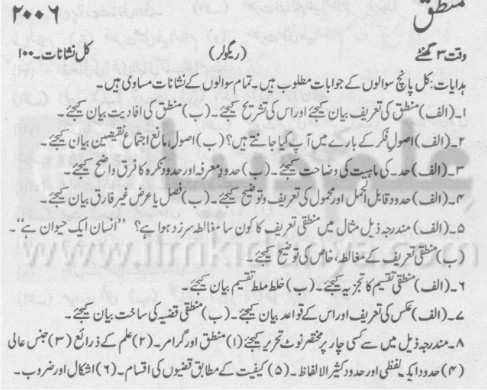 منطق ۲۰۰۶
وقت ۳ گھنٹے (ریگولر) کل نشانات۔۱۰۰
ہدایات: کل پانچ سوالوں کے جوابات مطلوب ہیں۔ تمام سوالوں کے نشانات مساوی ہیں۔
۱۔ (الف) منطق کی تعریف بیان کیجئے اور اس کی تشریح کیجئے۔ (ب) منطق کی افادیت بیان کیجئے۔
۲۔ (الف) اصولِ فکر کے بارے میں آپ کیا جانتے ہیں؟ (ب) اصول مانع اجتماع نقیضین بیان کیجئے۔
۳۔ (الف) حد کی ماہیت کی وضاحت کیجئے۔ (ب) حدود معرفہ اور حدود نکرہ کا فرق واضح کیجئے۔
۴۔ (الف) حدود قابل الحمل اور محمول کی تعریف و توضیح کیجئے۔ (ب) فصل یا عرض غیر فارق بیان کیجئے۔
۵۔ (الف) مندرجہ ذیل مثال میں منطقی تعریف کا کون سا مغالطہ سرزد ہوا ہے؟ ”انسان ایک حیوان ہے“۔
(ب) منطقی تعریف کے مغالطہ خاص کی توضیح کیجئے۔
۶۔ (الف) منطقی تقسیم کا تجزیہ کیجئے۔ (ب) خلط ملط تقسیم بیان کیجئے۔
۷۔ (الف) عکس کی تعریف اور اس کے قواعد بیان کیجئے۔ (ب) منطقی قضیہ کی ساخت بیان کیجئے۔
۸۔ مندرجہ ذیل میں سے کسی چار پر مختصر نوٹ تحریر کیجئے (۱) منطق اور گرامر۔ (۲) علم کے ذرائع (۳) جنس عالی
(۴) حدود ایک لفظی اور حدود کثیر الالفاظ۔ (۵) کیفیت کے مطابق قضیوں کی اقسام۔ (۶) اشکال اور ضروب۔
علم کی دنیا
www.ilmkidunya.com